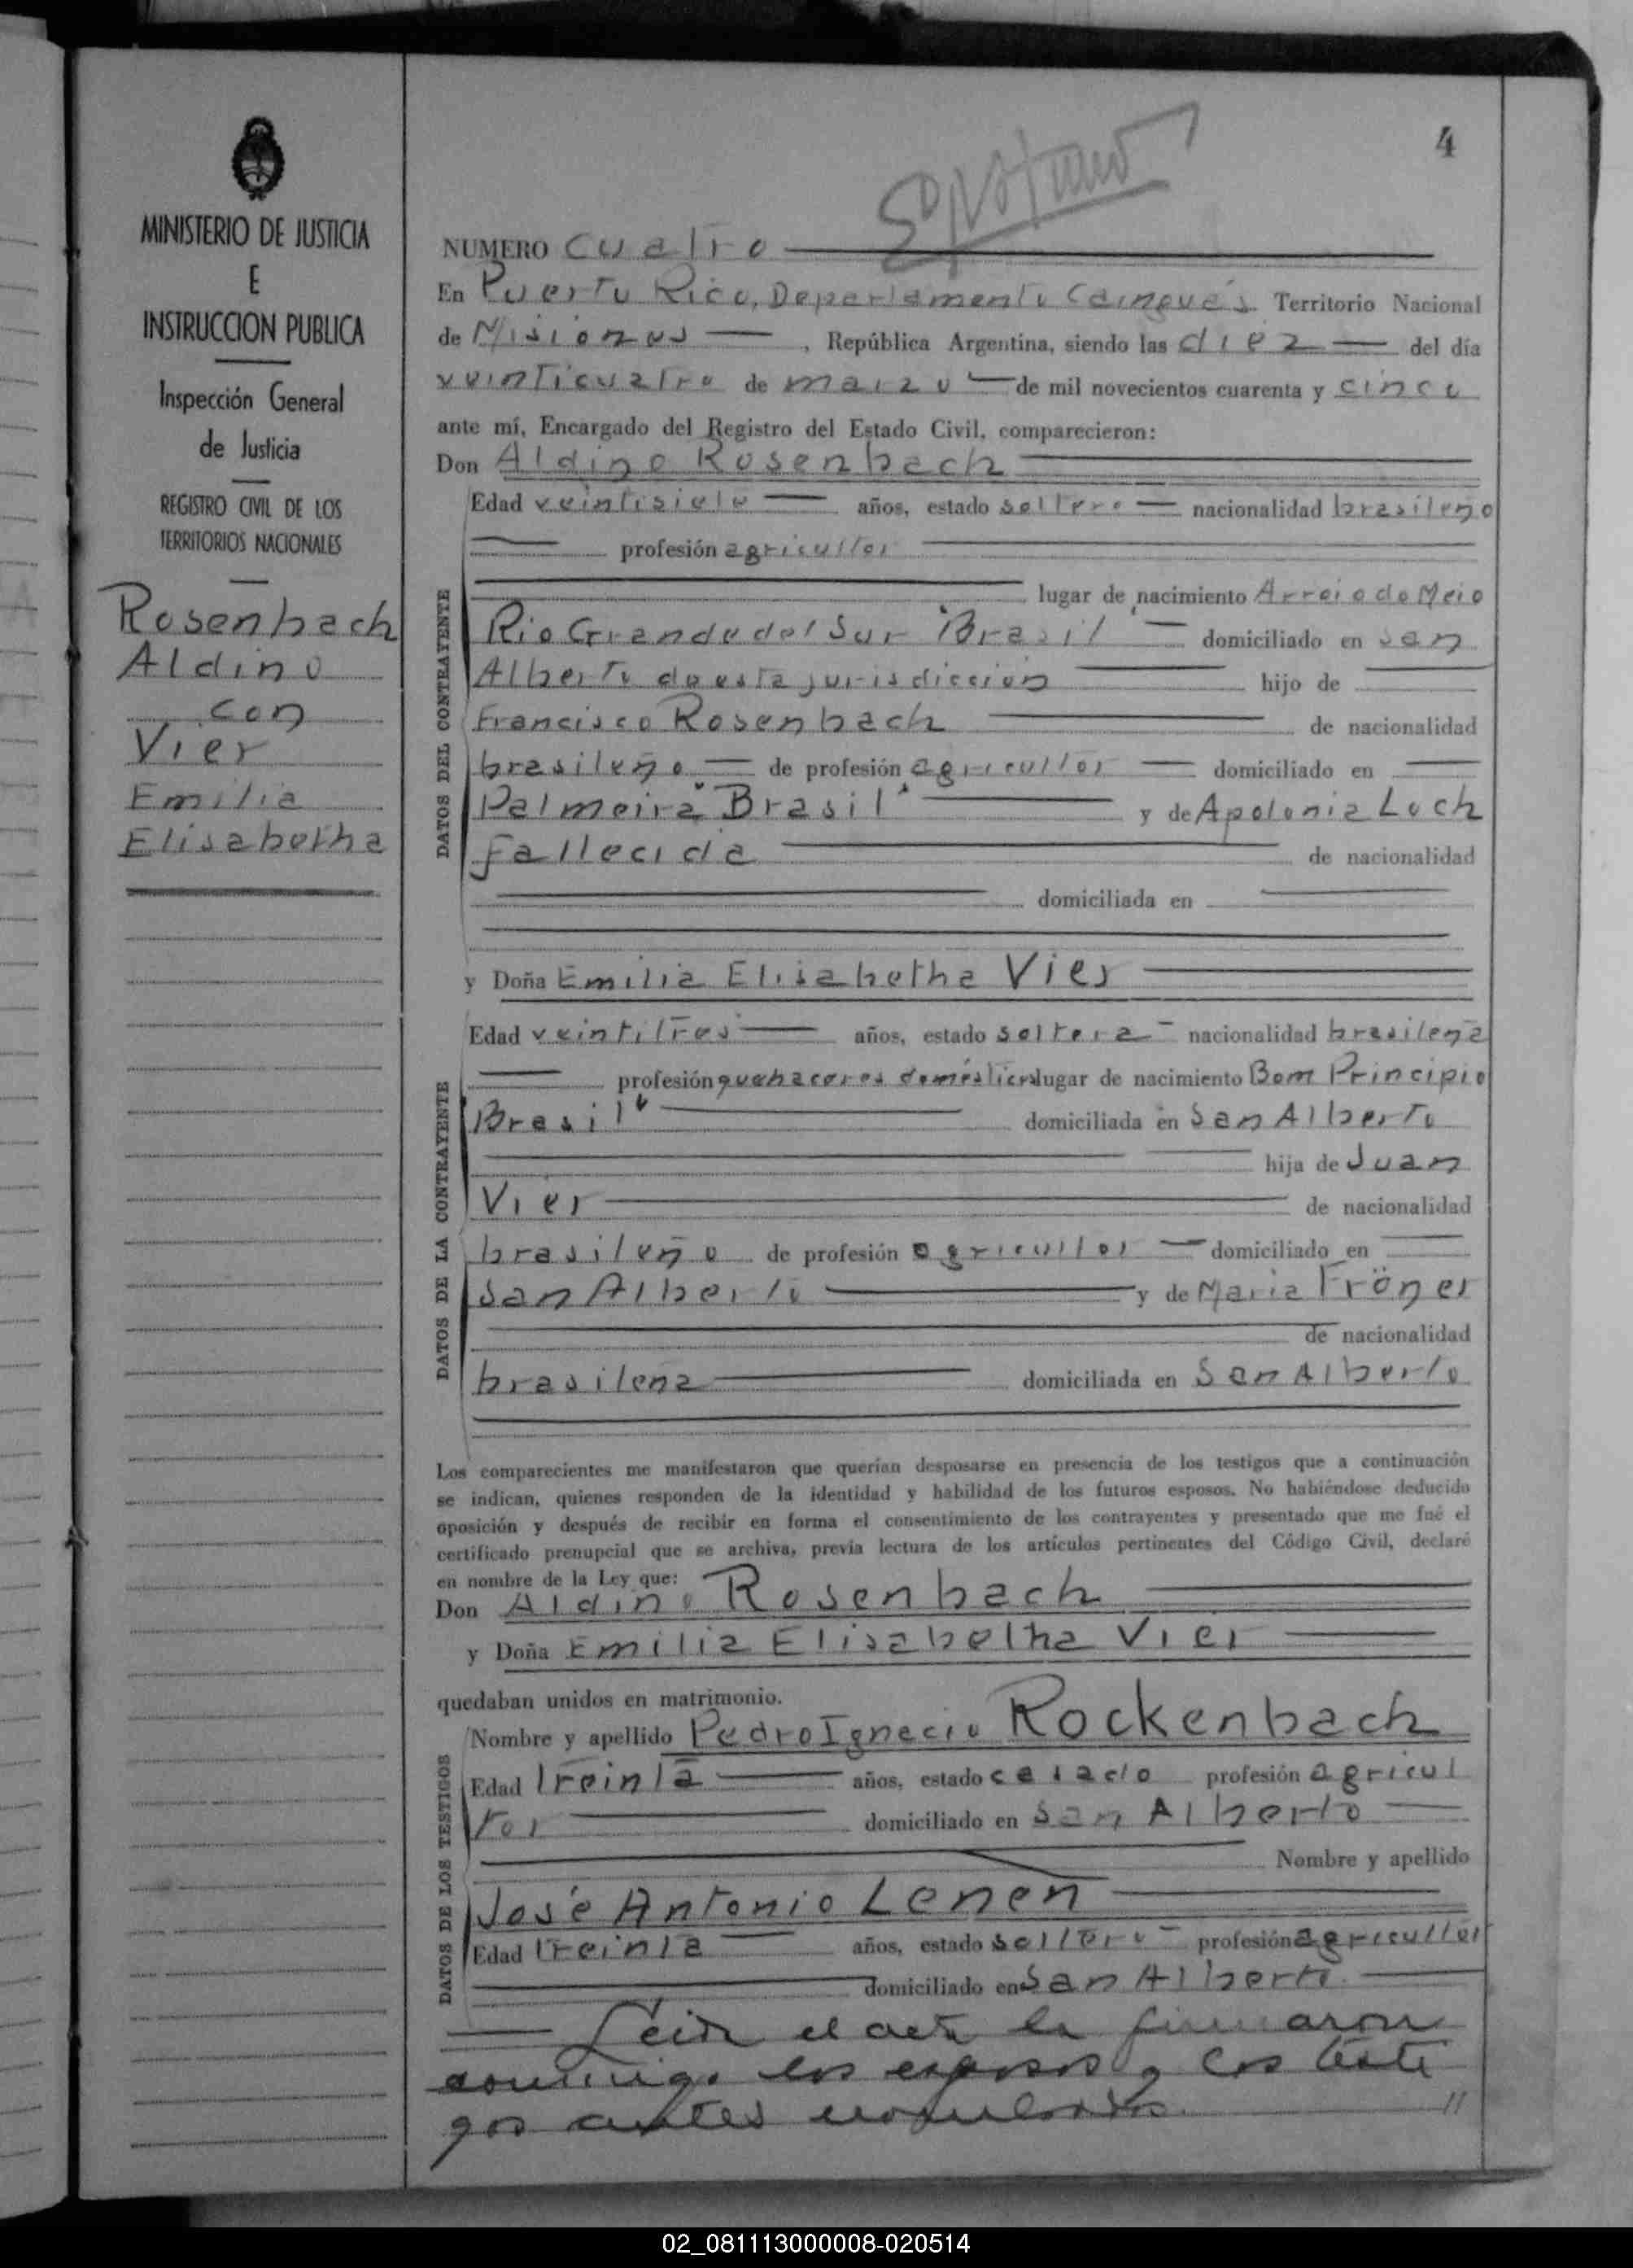 4
MINISTERIO DE JUSTICIA
E
INSTRUCCION PUBLICA
Inspección General
de Justicia
REGISTRO CIVIL DE LOS
TERRITORIOS NACIONALES
Rosenbach
Aldino
con
Vier
Emilia
Elisabetha
NUMERO cuatro
En Puerto Rico, Departamento Cainguás Territorio Nacional
de Misiones, República Argentina, siendo las diez del día
veinticuatro de marzo de mil novecientos cuarenta y cinco
ante mí, Encargado del Registro del Estado Civil, comparecieron:
Don Aldino Rosenbach
DATOS DEL CONTRAYENTE
Edad veintisiete años, estado soltero nacionalidad brasileño
profesión agricultor
lugar de nacimiento Arroio do Meio
Rio Grande del Sur "Brasil" domiciliado en San
Alberto de esta jurisdicción hijo de
Francisco Rosenbach de nacionalidad
brasileño de profesión agricultor domiciliado en
Palmeira "Brasil" y de Apolonia Loch
fallecida de nacionalidad
domiciliada en
y Doña Emilia Elisabetha Vier
DATOS DE LA CONTRAYENTE
Edad veintitres años, estado soltera nacionalidad brasileña
profesión quehaceres domésticos lugar de nacimiento Bom Principio
Brasil" domiciliada en San Alberto
hija de Juan
Vier de nacionalidad
brasileño de profesión agricultor domiciliado en
San Alberto y de Maria Fröner
de nacionalidad
brasilena domiciliada en San Alberto
Los comparecientes me manifestaron que querían desposarse en presencia de los testigos que a continuación
se indican, quienes responden de la identidad y habilidad de los futuros esposos. No habiéndose deducido
oposición y después de recibir en forma el consentimiento de los contrayentes y presentado que me fué el
certificado prenupcial que se archiva, previa lectura de los artículos pertinentes del Código Civil, declaré
en nombre de la Ley que:
Don Aldino Rosenbach
y Doña Emilia Elisabetha Vier
quedaban unidos en matrimonio.
DATOS DE LOS TESTIGOS
Nombre y apellido Pedro Ignacio Rockenbach
Edad treinta años, estado casado profesión agricul
tor domiciliado en San Alberto
Nombre y apellido
José Antonio Lenen
Edad treinta años, estado soltero profesión agricultor
domiciliado en San Alberto
Leida el acta la firmaron
conmigo los esposos y los testi
gos antes nombrados. //
02_081113000008-020514